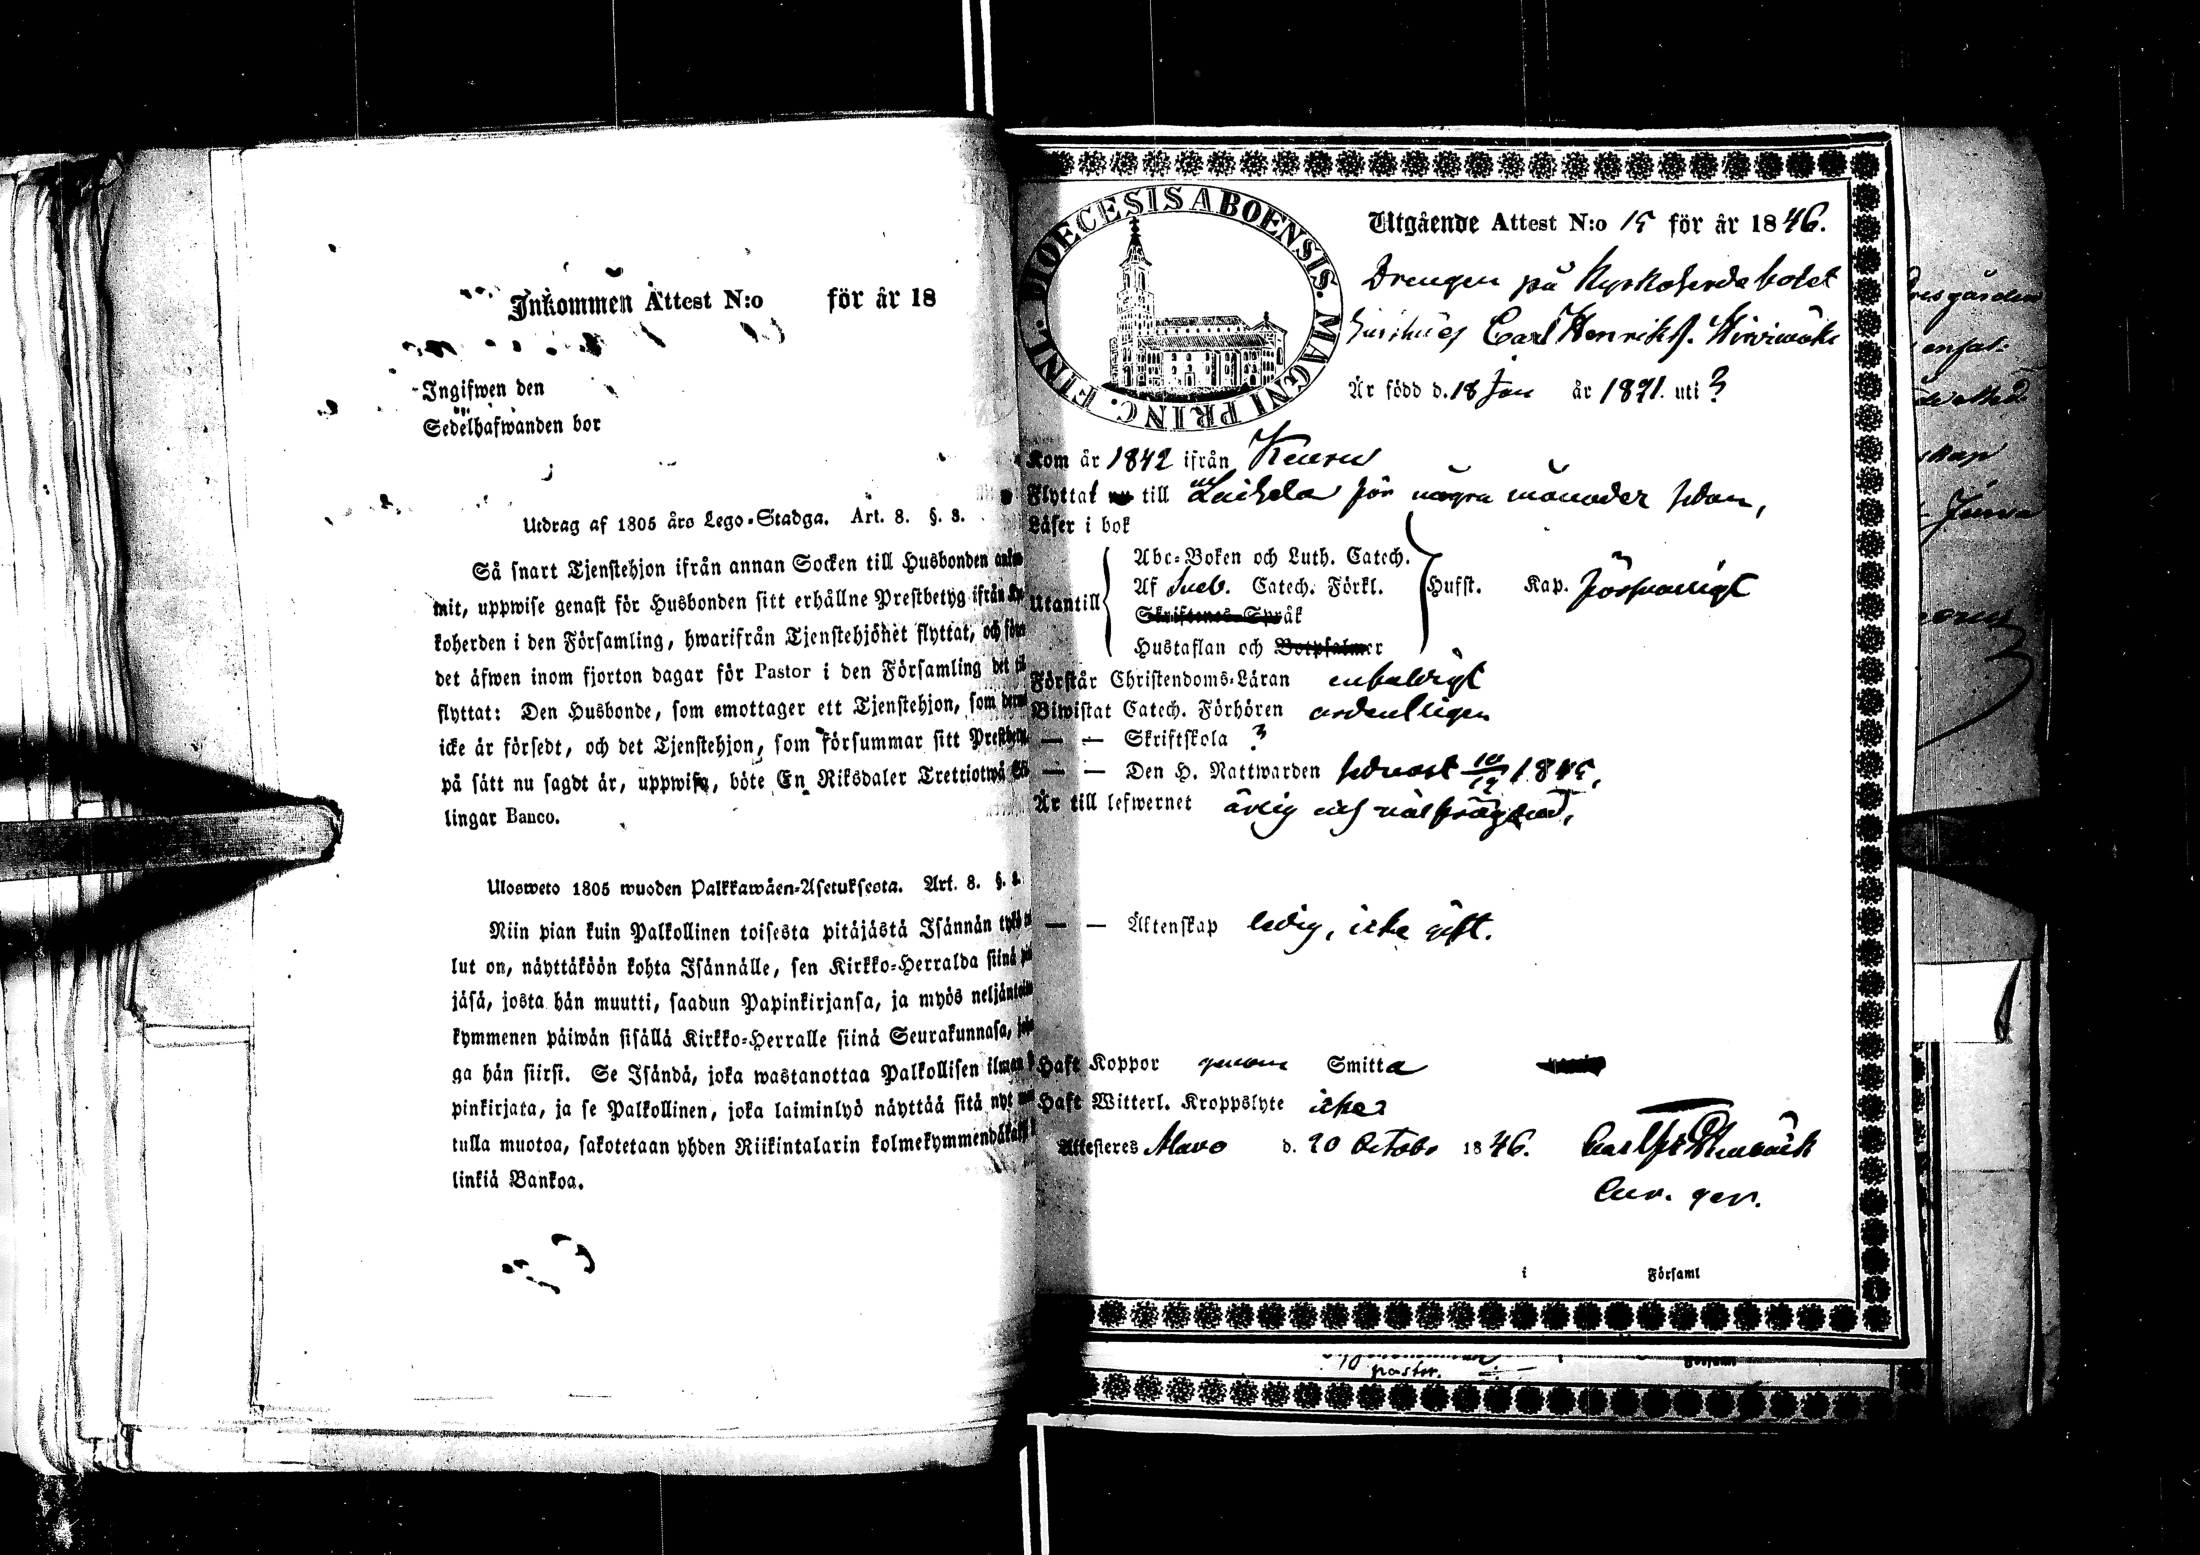 Inkommen Attest N:o för år 18
Ingifwen den
Sedelhafwanden bor
Utdrag af 1805 års Lego-Stadga. Art. 8. §. 8.
Så snart Tjenstehjon ifrån annan Socken till Husbonden
mit, uppwise genast för Husbonden sitt erhållne Prestbetyg ifrån
koherden i den Församling, hwarifrån Tjenstehjonet flyttat, och
det äfwen inom fjorton dagar för Pastor i den Församling det
flyttat: Den Husbonde, som emottager ett Tjenstehjon, som
icke är försedt, och det Tjenstehjon, som försummar sitt
på sätt nu sagdt är, uppwisa, böte En Riksdaler Trettiotwå
lingar Banco.
Ulosweto 1805 wuoden Palkkawäen-Asetuksesta. Art. 8. §.
Niin pian kuin Palkollinen toisesta pitäjästä Isännän
lut on, näyttäköön kohta Isännälle, sen Kirkko-Herralda siinä
jäsä, josta hän muutti, saadun Papinkirjansa, ja myös
kymmenen päiwän sisällä Kirkko-Herralle siinä Seurakunnasa,
ga hän siirsi. Se Isändä, joka wastanottaa Palkollisen ilman
pinkirjata, ja se Palkollinen, joka laiminlyö näyttää sitä nyt
tulla muotoa, sakotetaan yhden Riikintalarin
linkiä Bankoa.
DIOECESIS ABOENSIS. MAGNI PRINC. FINL.
Utgående Attest N:o 15 för år 1846.
Drengen på
Carl Henriksson
Är född d. 18 Jan år uti ?
Kom år 1842 ifrån Keuru
Flyttat till Laihela för några månader sedan,
Läser i bok
Utantill
Abc-Boken och Luth. Catech.
Af Sweb. Catech. Förkl. Hufst. Kap. försvarligt
Skriftenes-Språk
Hustaflan och Botpsalmer
Förstår Christendoms-Läran enfaldigt
Biwistat Catech. Förhören ordentligen
— — Skriftskola ?
— — Den H. Nattwarden sednast 10/12 1845,
Är till lefwernet ärlig och välfrägdad,
— — Äktenskap ledig, icke gift.
Haft Koppor genom Smitta
Haft Witterl. Kroppslyte icke
Attesteras Alavo d. 20 October 1846.
i Församl
pastor.
Församl